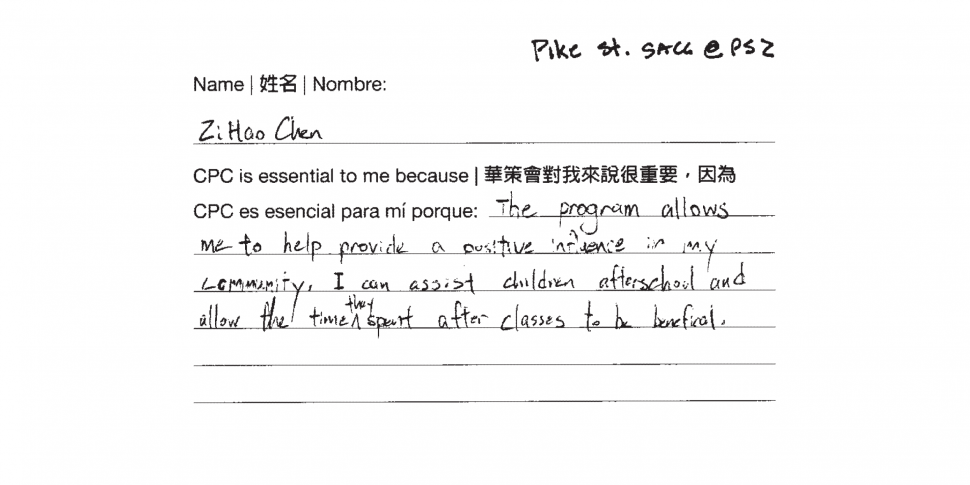 Pike St. SACC @ PS2
Name | 姓名 | Nombre:
ZiHao Chen
CPC is essential to me because | 華策會對我來說很重要，因為
CPC es esencial para mí porque: The program allows
me to help provide a positive influence in my
community, I can assist children afterschool and
allow the time they spent after classes to be benefical.